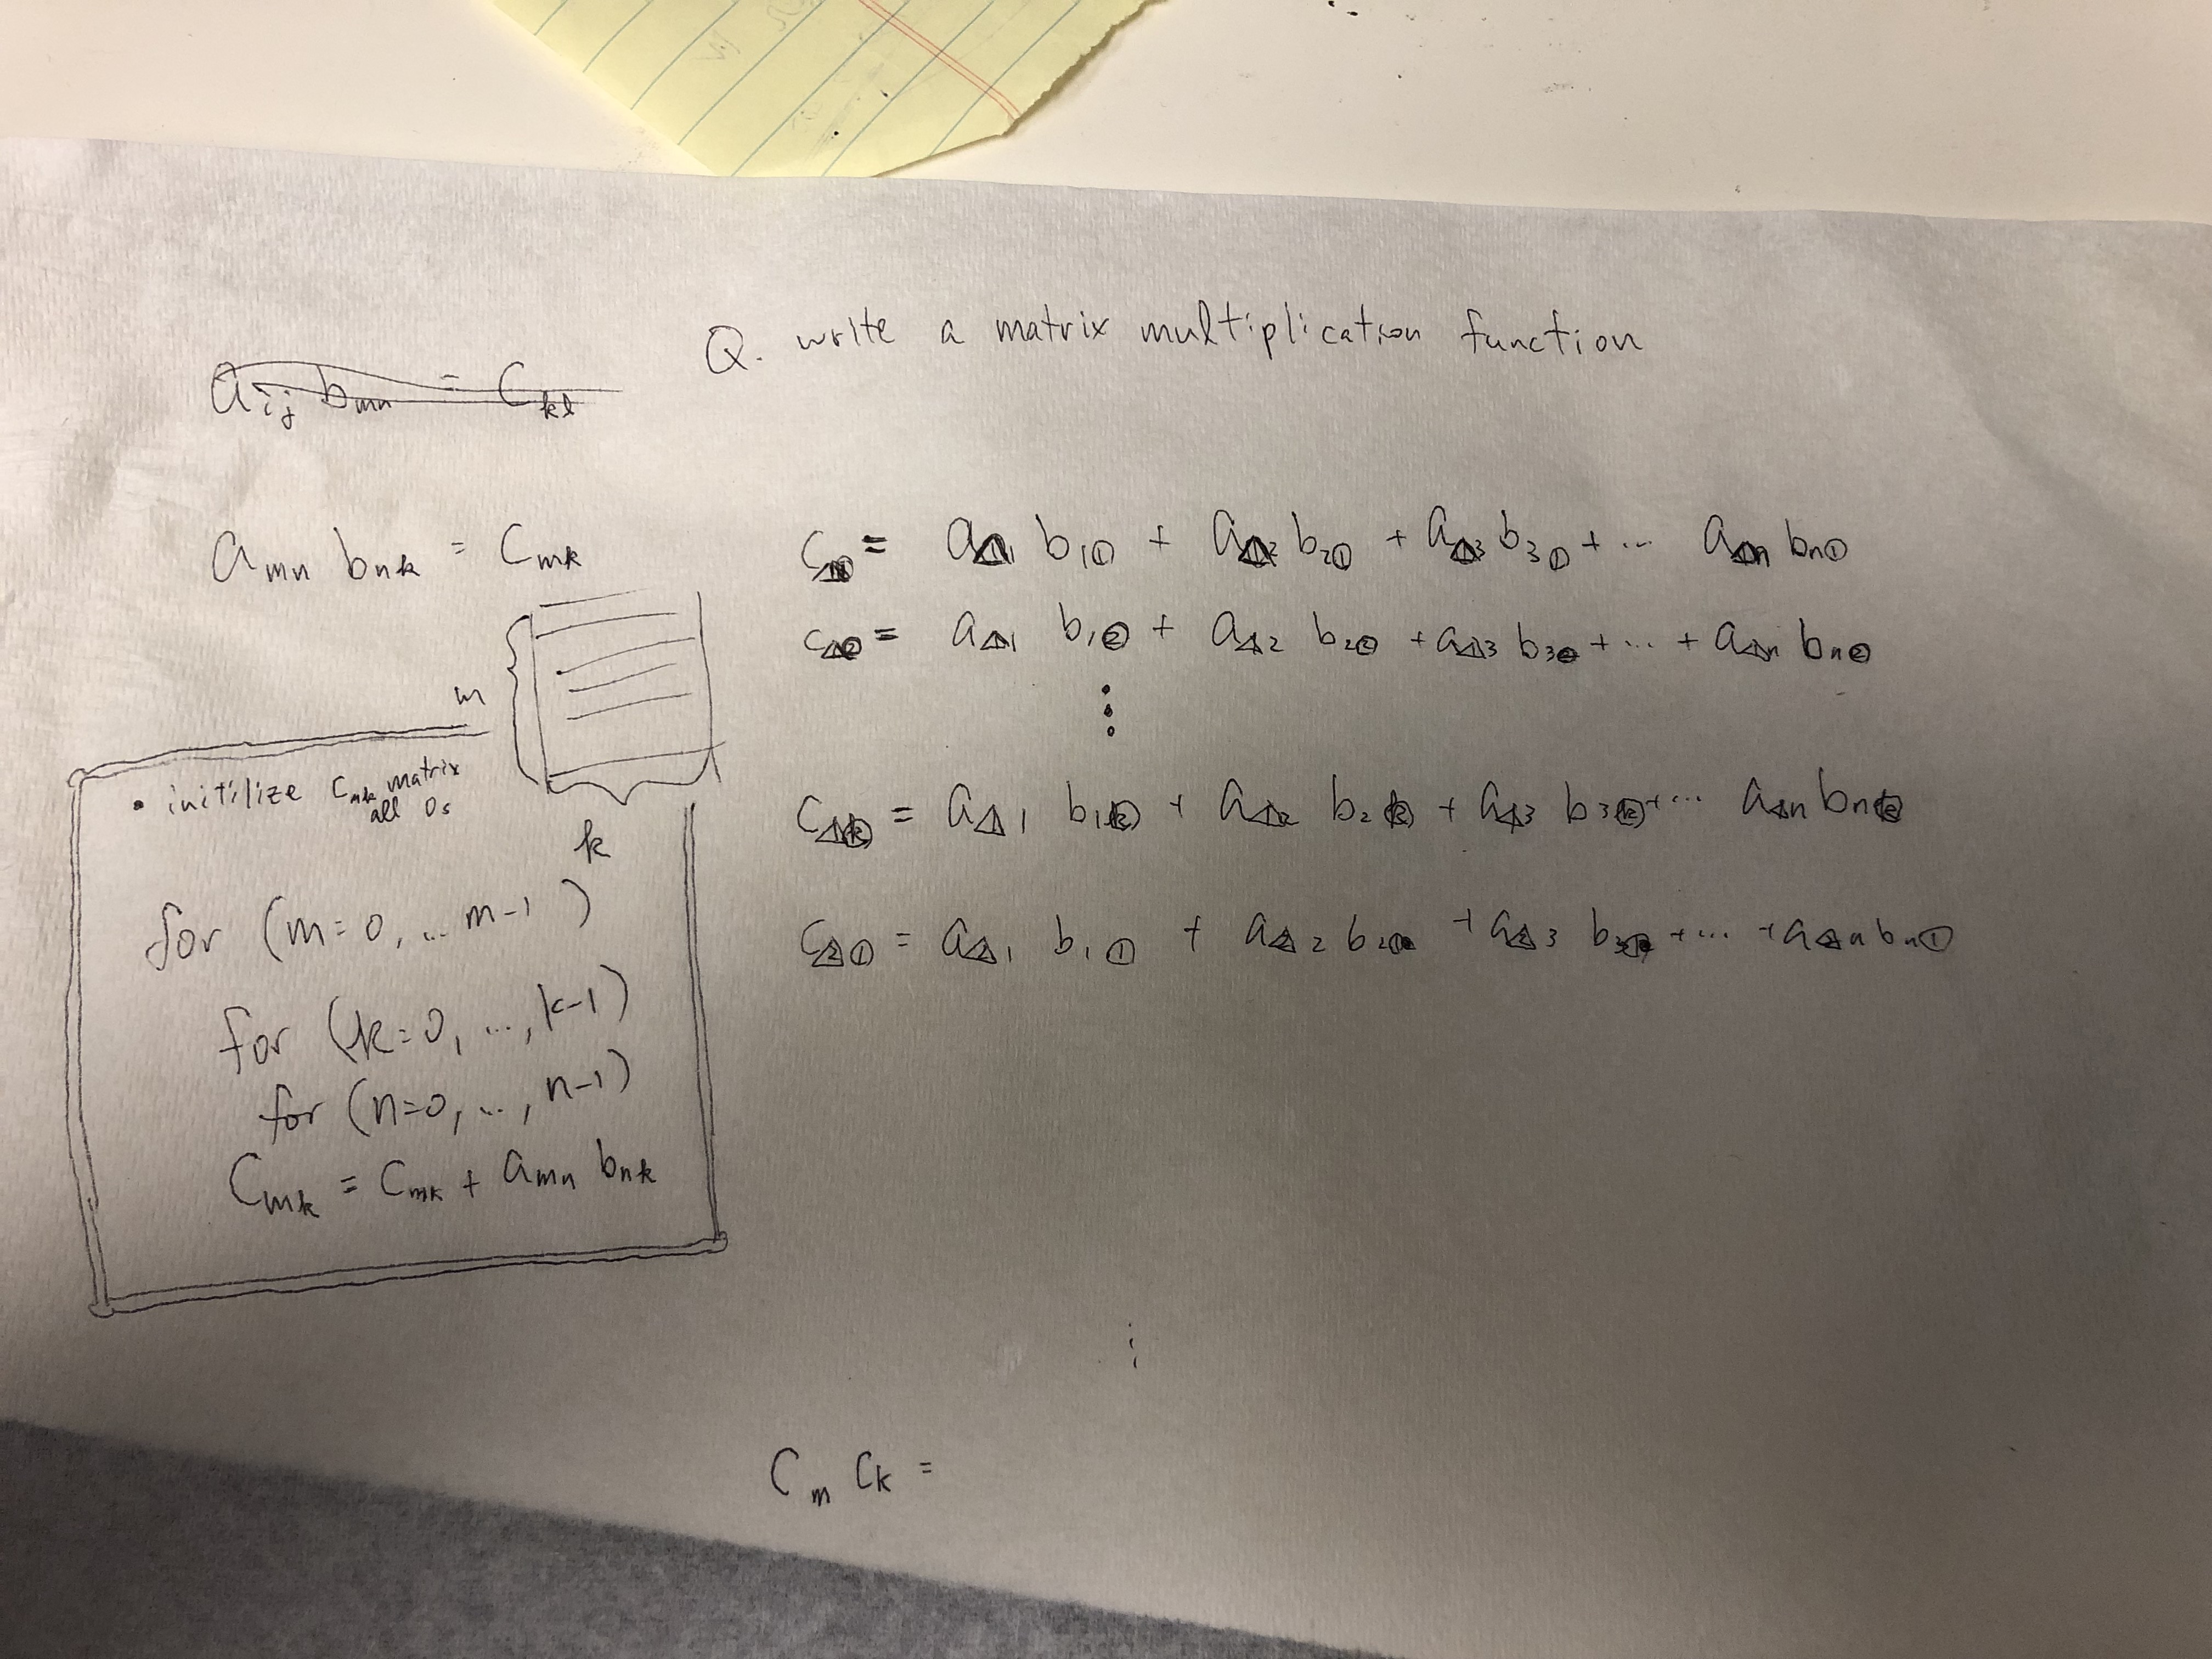 Q. write a matrix multiplication function
aij bmn = Ckl
amn bnk = Cmk
m
k
• initilize Cmk matrix
all 0s
for (m=0, ... m-1)
for (k=0, ..., k-1)
for (n=0, ..., n-1)
Cmk = Cmk + amn bnk
C11 = a11 b11 + a12 b21 + a13 b31 + ... a1n bn1
C12 = a11 b12 + a12 b22 + a13 b32 + ... + a1n bn2
⋮
C1k = a11 b1k + a12 b2k + a13 b3k + ... a1n bnk
C21 = a21 b11 + a22 b21 + a23 b31 + ... + a2n bn1
⋮
Cm Ck =